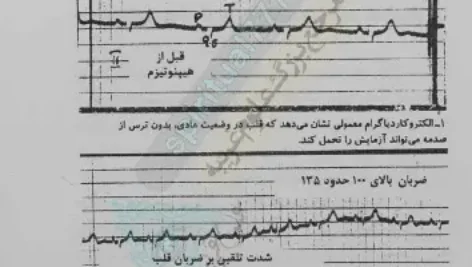 P T
QS
II
قبل از
هیپنوتیزم
۱ـ الکتروکاردیاگرام معمولی نشان می‌دهد که قلب در وضعیت عادی، بدون ترس از
صدمه می‌تواند آزمایش را تحمل کند.
ضربان بالای ۱۰۰ حدود ۱۳۵
شدت تلقین بر ضربان قلب